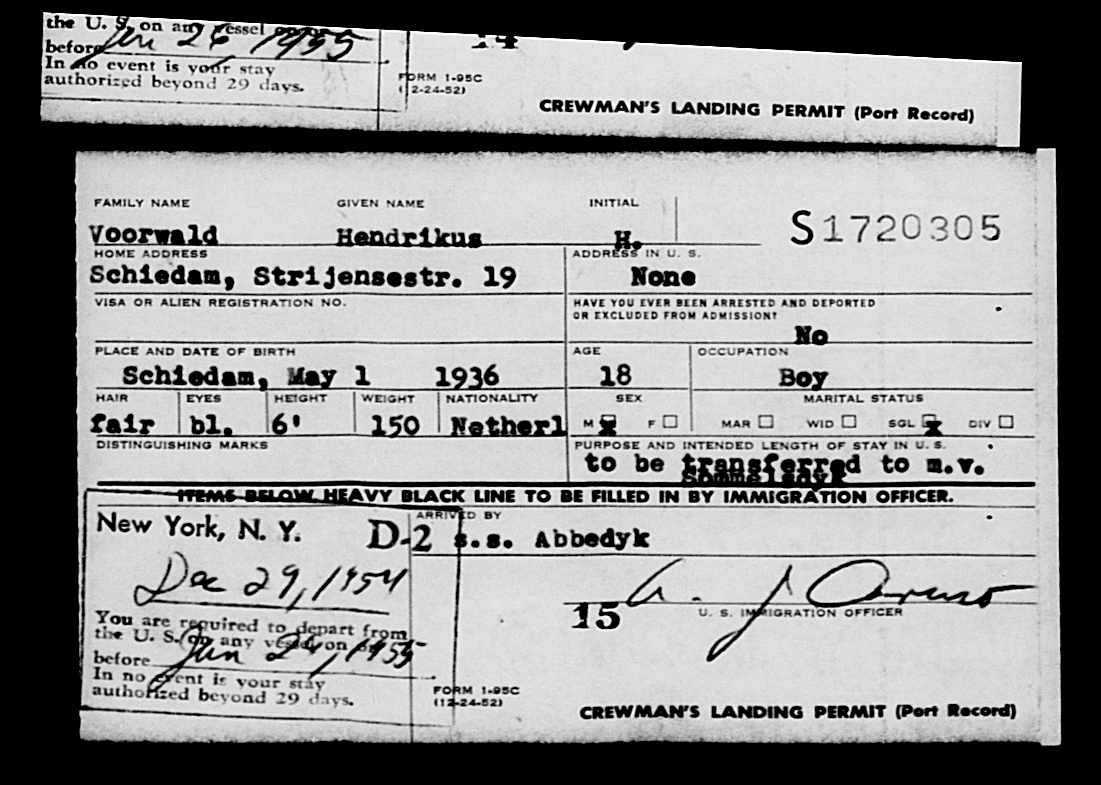 the U. S. on any vessel on or
before Jan 26, 1955
In no event is your stay
authorized beyond 29 days.
14
FORM 1-95C
(12-24-52)
CREWMAN'S LANDING PERMIT (Port Record)
FAMILY NAME GIVEN NAME INITIAL
S1720305
Voorwald Hendrikus H.
HOME ADDRESS ADDRESS IN U. S.
Schiedam, Strijensestr. 19 None
VISA OR ALIEN REGISTRATION NO. HAVE YOU EVER BEEN ARRESTED AND DEPORTED
OR EXCLUDED FROM ADMISSION?
No
PLACE AND DATE OF BIRTH AGE OCCUPATION
Schiedam, May 1 1936 18 Boy
HAIR EYES HEIGHT WEIGHT NATIONALITY SEX MARITAL STATUS
fair bl. 6' 150 Netherl M x F MAR WID SGL x DIV
DISTINGUISHING MARKS PURPOSE AND INTENDED LENGTH OF STAY IN U. S.
to be transferred to m.v.
Sommelsdyk
ITEMS BELOW HEAVY BLACK LINE TO BE FILLED IN BY IMMIGRATION OFFICER.
New York, N. Y. D-2 ARRIVED BY
s.s. Abbedyk
Dec 29, 1954
15
U. S. IMMIGRATION OFFICER
You are required to depart from
the U. S. on any vessel on or
before Jan 27, 1955
In no event is your stay
authorized beyond 29 days.
FORM 1-95C
(12-24-52)
CREWMAN'S LANDING PERMIT (Port Record)